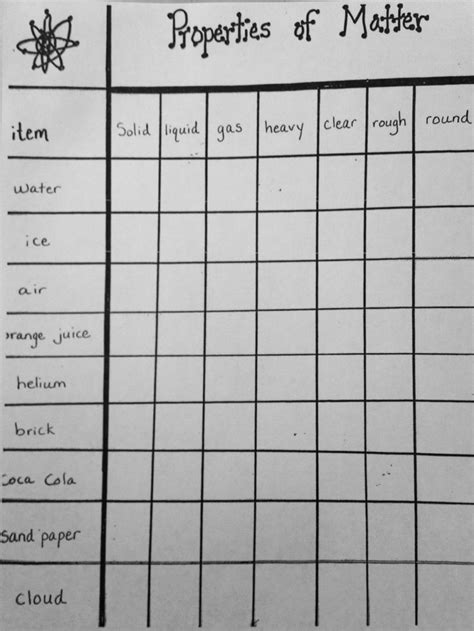 Properties of Matter
item Solid liquid gas heavy clear rough round
water
ice
air
orange juice
helium
brick
Coca Cola
Sand paper
cloud